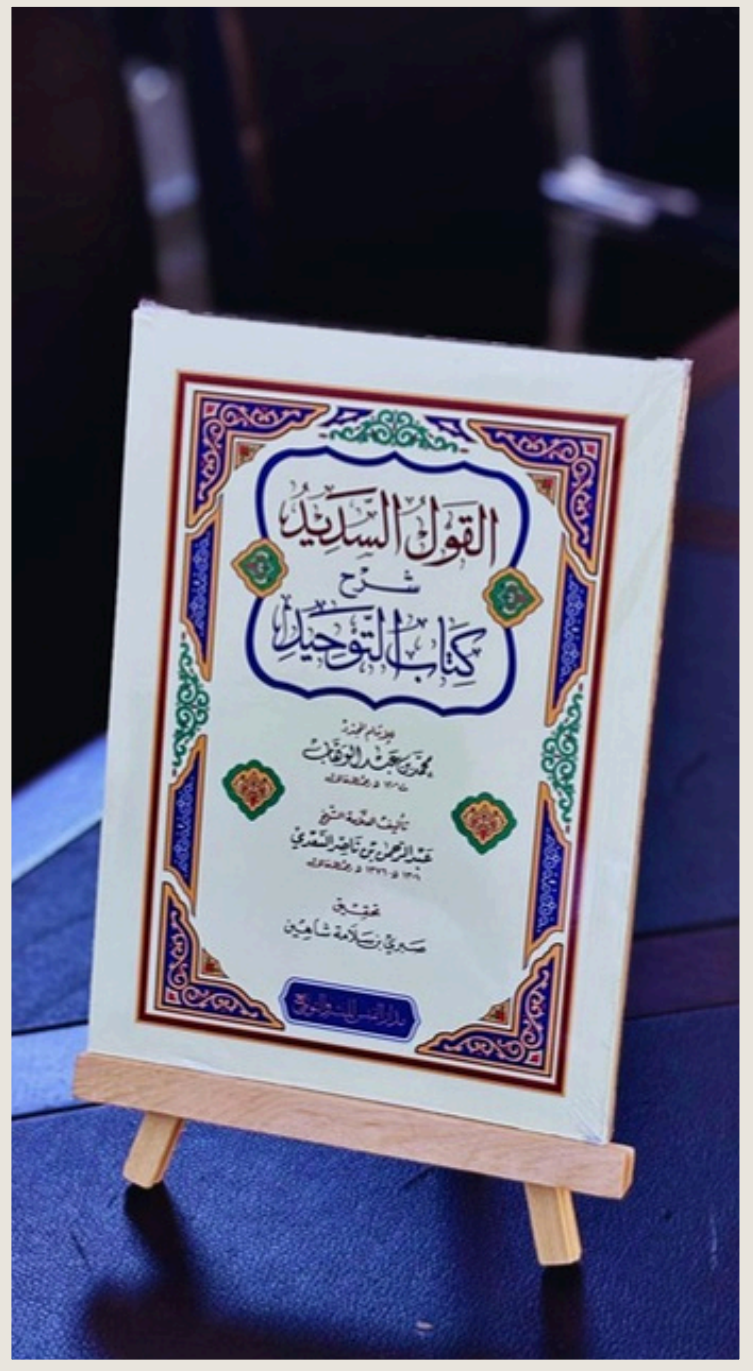 القَولُ السَّدِيدُ
شَرح
كِتَابِ التَّوحِيدِ
للإمام المجدد
محمد بن عبد الوهاب
تأليف العلامة الشيخ
عبد الرحمن بن ناصر السعدي
١٣٠٧ هـ - ١٣٧٦ هـ رحمه الله تعالى
تحقيق
صبري بن سلامة شاهين